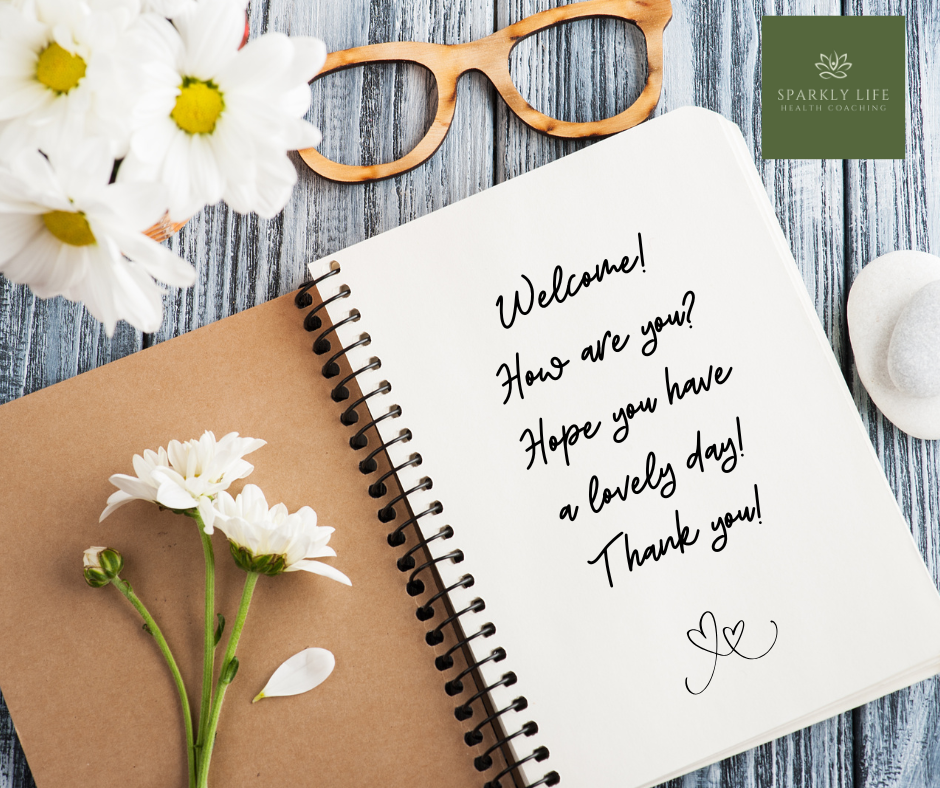 SPARKLY LIFE
HEALTH COACHING
Welcome!
How are you?
Hope you have
a lovely day!
Thank you!